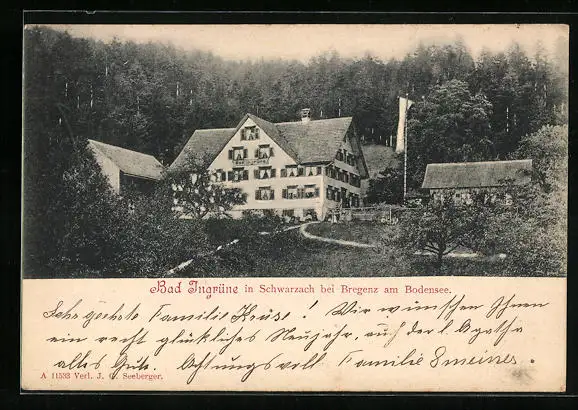 Bad Ingrüne in Schwarzach bei Bregenz am Bodensee.
Sehr geehrteste Familie Heuse! Wir wünschen Ihnen
ein recht glückliches Neujahr, auf der l. Agatha
alles Gute. Achtungsvoll Familie Gmeiner.
A 11533 Verl. J. G. Seeberger.